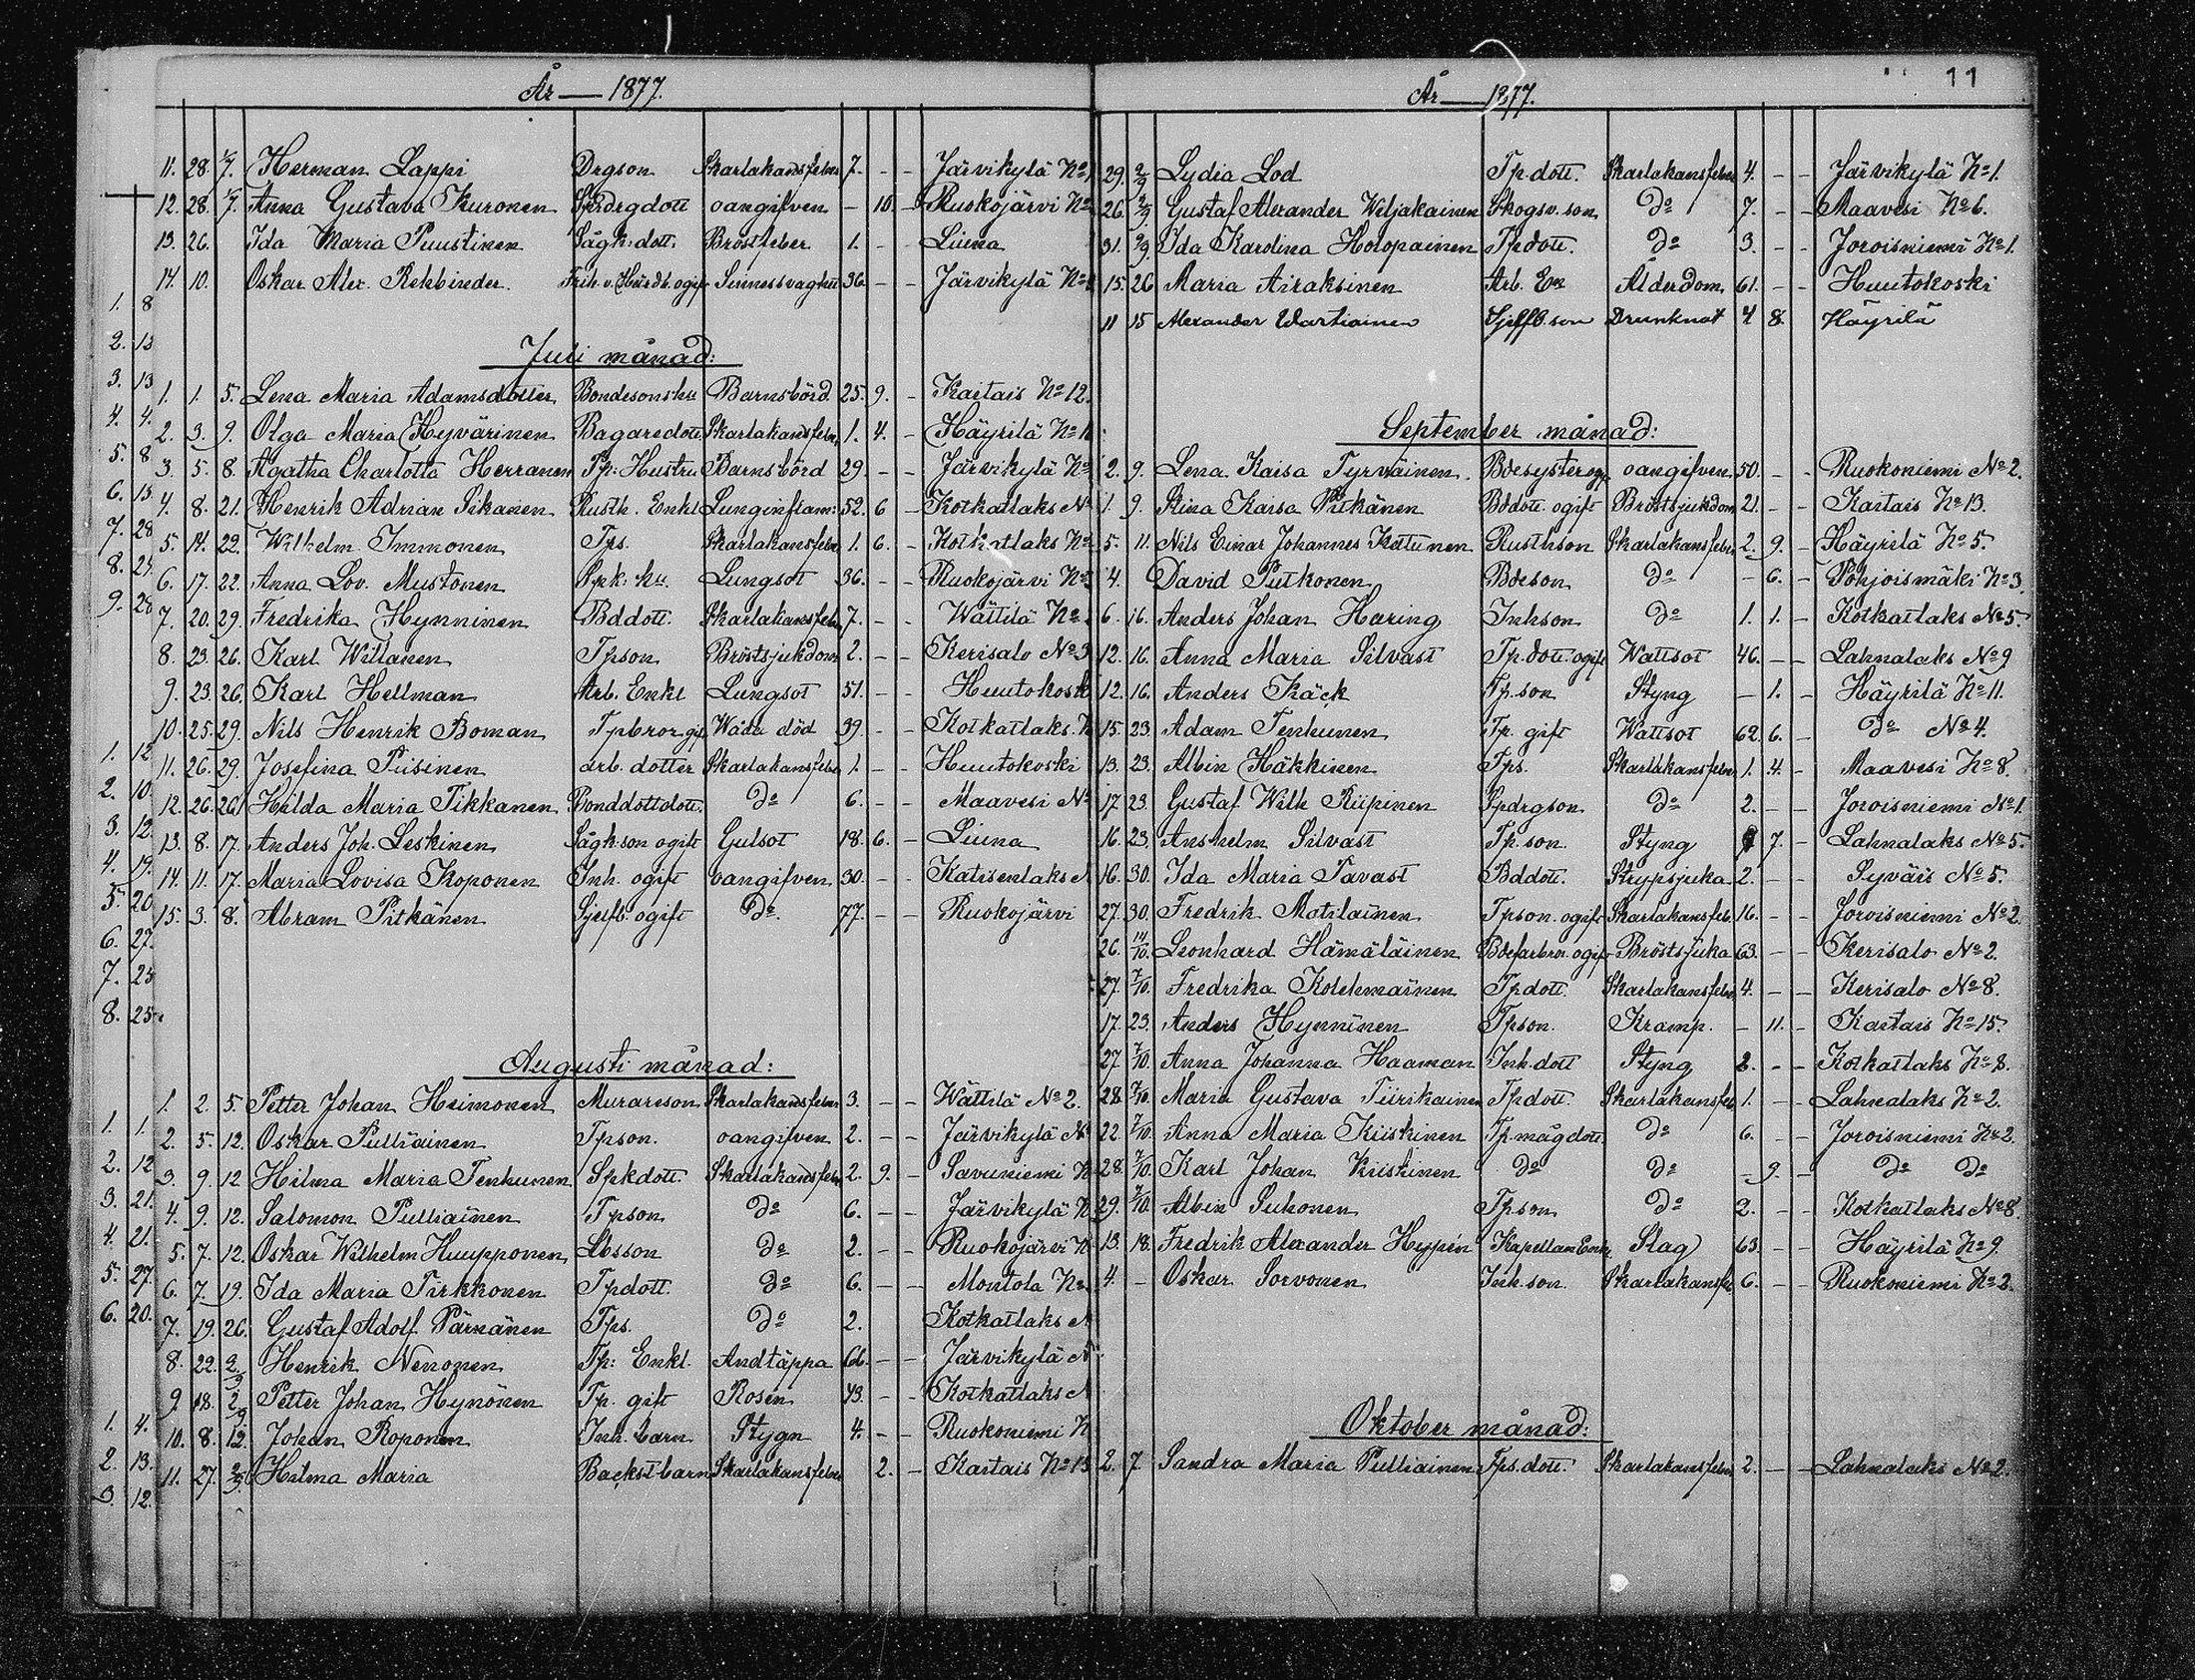 År — 1877.
11. 28. 1/7. Herman Lappi Drgson Skarlakansfeber 7. - - Järvikylä No
12. 28. 1/7. Anna Gustava Kuronen Spkdrgdott oangifven - 10. - Ruokojärvi No
13. 26. Ida Maria Puustinen Sågk: dott. Bröstfeber 1. - - Liuna
14. 10. Oskar Alex. Rehbinder. Frih. v. Häradh. ogift Sinnessvaghet 36 - - Järvikylä No
Juli månad:
1. 1. 5. Lena Maria Adamsdotter Bondesonshu Barnsbörd 25. 9. - Kaitais No 12.
2. 3. 9. Olga Maria Hyvärinen Bagaredott Skarlakansfeber 1. 4. - Häyrilä No 11
3. 5. 8. Agatha Charlotta Herranen Tp: Hustru Barnsbörd 29. - - Järvikylä No
4. 8. 21. Henrik Adrian Sikanen Rusth. Enkl Lunginflam: 52. 6 - Kotkatlaks No
5. 14. 22. Wilhelm Immonen Tps. Skarlakansfeber 1. 6. - Kotkatlaks No
6. 17. 22. Anna Lov. Mustonen Spk: hu. Lungsot 36. - - Ruokojärvi No
7. 20. 29. Fredrika Hynninen Bddott. Skarlakansfeber 7. - - Wättilä No
8. 23. 26. Karl Willanen Tpson Bröstsjukdom 2. - - Kerisalo No 3
9. 23. 26. Karl Hellman Arb. Enkl Lungsot 51. - - Huutokosk
10. 25. 29. Nils Henrik Boman Tpbror gift Wåda död 39. - - Kotkatlaks. N
11. 26. 29. Josefina Piisinen arb. dotter Skarlakansfeber 1. - - Huutokoski
12. 26. 26. Hilda Maria Tikkanen Bonddottdott. do 6. - - Maavesi No
13. 8. 17. Anders Joh. Leskinen Sågk: son ogift Gulsot 18. 6. - Liuna
14. 11. 17. Maria Lovisa Koponen Inh. ogift oangifven 30. - - Katisenlaks N
15. 3. 8. Abram Pitkänen Sjelfb. ogift do 77. - - Ruokojärvi
Augusti månad:
1. 2. 5. Petter Johan Heimonen Murareson Skarlakansfeber 3. - - Wättilä No 2.
2. 5. 12. Oskar Pulliainen Tpson. oangifven 2. - - Järvikylä N
3. 9. 12 Hilma Maria Tenhunen Spkdott. Skarlakansfeber 2. 9. - Savuniemi N
4. 9. 12. Salomon Pulliainen Tpson do 6. - - Järvikylä N
5. 7. 12. Oskar Wilhelm Huupponen Lbsson do 2. - - Ruokojärvi N
6. 7. 19. Ida Maria Pirkkonen Tpdott. do 6. - - Montola No
7. 19. 26. Gustaf Adolf Pärnänen Tps. do 2. Kotkatlaks N
8. 22. 2/9 Henrik Nenonen Tp: Enkl. Andtäppa 66. - - Järvikylä N
9 18. 2/9. Petter Johan Hynönen Tp. gift Rosen 43. - - Kotkatlaks N
10. 8. 12. Johan Roponen Inh. barn Stygn 4. - - Ruokoniemi N
11. 27. 2/9. Hilma Maria Backst barn Skarlakansfeber 2. - Kaitais No 13
1. 8
2. 13
3. 13
4. 4.
5. 8
6. 15
7. 28
8. 24
9. 28
1. 12
2. 10.
3. 12
4. 19.
5. 20
6. 27.
7. 25
8. 25
1. 1.
2. 12
3. 21.
4. 21.
5. 27.
6. 20.
1. 4.
2. 13.
3. 12.
11
År — 1877.
29. 2/9 Lydia Lod Tp. dott. Skarlakansfeber 4. - - Järvikylä No 1.
26. 2/9. Gustaf Alexander Weljakainen Skogsv. son do 7. - - Maavesi No 6.
31. 2/9. Ida Karolina Holopainen Tpdott. do 3. - - Joroisniemi No 1.
15. 26 Maria Airaksinen Arb. Ex Ålderdom 61. - - Huutokoski
11 15 Alexander Wartiainen Sjelfb. son Drunknat 4 8. Häyrilä
September månad:
2. 9. Lena Kaisa Tyrväinen Bdesyster og oangifven 50. - - Ruokoniemi No 2.
1. 9. Stina Kaisa Pitkänen Bddott. ogift Bröstsjukdom 21. - - Kaitais No 13.
5. 11. Nils Einar Johannes Kettunen Rusthson Skarlakansfeber 2. 9. - Häyrilä No 5.
4. David Putkonen Bdeson do - 6. - Pohjoismäki No 3
6. 16. Anders Johan Haring Inhson do 1. 1. - Kotkatlaks No 5.
12. 16. Anna Maria Silvast Tp. dott. ogift Wattsot 46. - - Lahnalaks No 9
12. 16. Anders Käck Tp. son Styng - 1. - Häyrilä No 11.
15. 23. Adam Tenhunen Tp. gift Wattsot 62. 6. - do No 4.
13. 23. Albin Häkkinen Tps. Skarlakansfeber 1. 4. - Maavesi No 8.
17 23. Gustaf Wilh Riipinen Spdrgson do 2. - - Joroisniemi No 1
16. 23. Anshelm Silvast Tp. son Styng 7. - Lahnalaks No 5.
16. 30. Ida Maria Tavast Bddott. Strypsjuka 2. - - Syväis No 5.
27. 30. Fredrik Matilainen Tpson. ogift Skarlakansfeb. 16. - - Joroisniemi No 2.
26. 14/10. Leonhard Hämäläinen Bdefarbror. ogift Bröstsjuka 63. - - Kerisalo No 2.
27. 7/10. Fredrika Kolehmainen Tpdott. Skarlakansfeber 4. - - Kerisalo No 8.
17. 23. Anders Hynninen Tpson. Kramp. - 11. - Kaitais No 15.
27 7/10. Anna Johanna Haaman Inh. dott Styng 2. - - Kotkatlaks No 8.
28. 7/10. Maria Gustava Tiirikainen Tpdott. Skarlakansfeb 1. - - Lahnalaks No 2.
22. 7/10. Anna Maria Kiiskinen Tp. mågdott. do 6. - Joroisniemi No 2.
28. 7/10 Karl Johan Kiiskinen do do - 9. - do do
29. 7/10. Albin Suhonen Tp. son do 2. - Kotkatlaks No 8.
13. 18. Fredrik Alexander Heppén Kapellan Enkl Slag 63. - - Häyrilä No 9.
4. - Oskar Sorvonen Inh. son Skarlakansfe 6. - - Ruokoniemi No 2.
Oktober månad:
2. 7. Sandra Maria Pulliainen Tps. dott. Skarlakansfeber 2. - - Lahnalaks No 2.